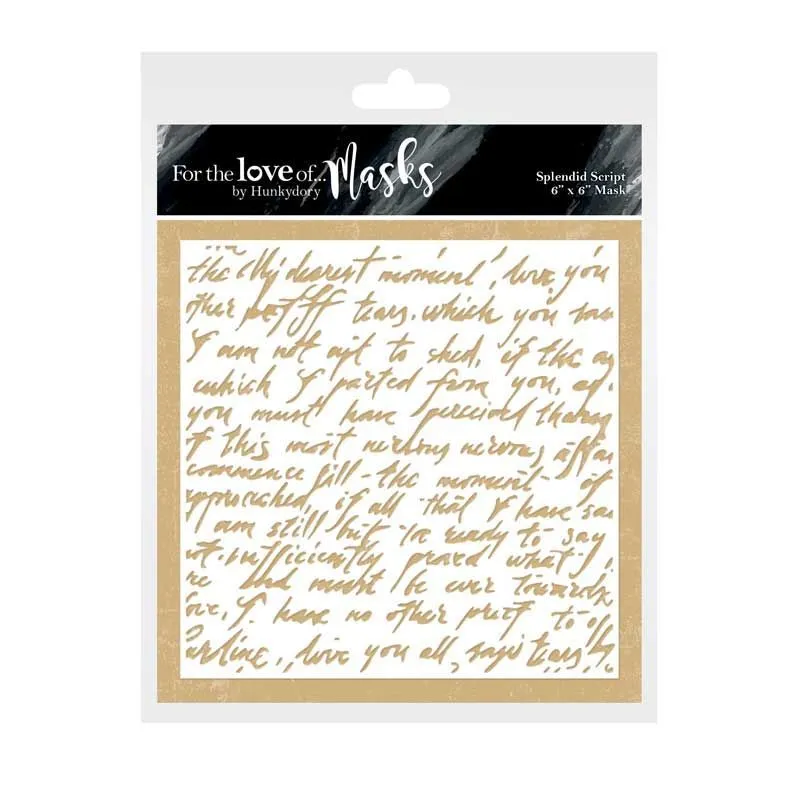 For the love of... Masks
by Hunkydory
Splendid Script
6" x 6" Mask
the My dearest moment, love you
other tears. which you
I am not apt to shed, if the
which I parted from you,
you must have
of this most nervous
commence till the moment of
approached, if all that I have
am still but ready to say
sufficiently what
and must be ever towards
love, I have no other to
love you all, says tears